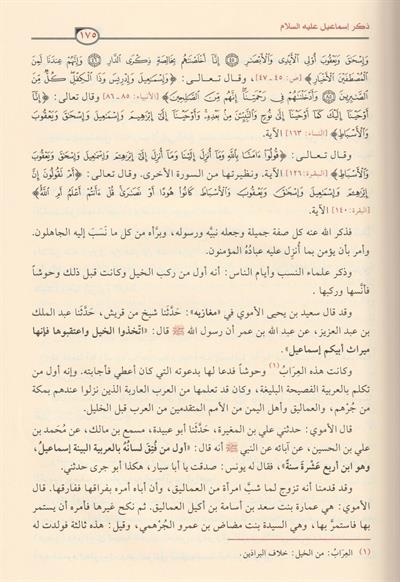 ذكر إسماعيل عليه السلام
١٧٥
وَإِسْحَٰقَ وَيَعْقُوبَ أُوْلِي ٱلْأَيْدِي وَٱلْأَبْصَٰرِ ۝ إِنَّآ أَخْلَصْنَٰهُم بِخَالِصَةٍ ذِكْرَى ٱلدَّارِ ۝ وَإِنَّهُمْ عِندَنَا لَمِنَ
ٱلْمُصْطَفَيْنَ ٱلْأَخْيَارِ﴾ [ص: ٤٥ -٤٧]، وقال تعالى: ﴿وَإِسْمَٰعِيلَ وَإِدْرِيسَ وَذَا ٱلْكِفْلِ كُلٌّ مِّنَ
ٱلصَّٰبِرِينَ ۝ وَأَدْخَلْنَٰهُمْ فِي رَحْمَتِنَآ إِنَّهُم مِّنَ ٱلصَّٰلِحِينَ﴾ [الأنبياء: ٨٥ -٨٦] وقال تعالى: ﴿إِنَّآ
أَوْحَيْنَآ إِلَيْكَ كَمَآ أَوْحَيْنَآ إِلَىٰ نُوحٍ وَٱلنَّبِيِّـۧنَ مِنۢ بَعْدِهِۦ وَأَوْحَيْنَآ إِلَىٰٓ إِبْرَٰهِيمَ وَإِسْمَٰعِيلَ وَإِسْحَٰقَ وَيَعْقُوبَ
وَٱلْأَسْبَاطِ﴾ [النساء: ١٦٣] الآية.
وقال تعالى: ﴿قُولُوٓاْ ءَامَنَّا بِٱللَّهِ وَمَآ أُنزِلَ إِلَيْنَا وَمَآ أُنزِلَ إِلَىٰٓ إِبْرَٰهِـۧمَ وَإِسْمَٰعِيلَ وَإِسْحَٰقَ وَيَعْقُوبَ
وَٱلْأَسْبَاطِ﴾ [البقرة:١٣٦] الآية. ونظيرتها من السورة الأخرى. وقال تعالى: ﴿أَمْ تَقُولُونَ إِنَّ
إِبْرَٰهِـۧمَ وَإِسْمَٰعِيلَ وَإِسْحَٰقَ وَيَعْقُوبَ وَٱلْأَسْبَاطَ كَانُواْ هُودًا أَوْ نَصَٰرَىٰ قُلْ ءَأَنتُمْ أَعْلَمُ أَمِ ٱللَّهُ﴾
[البقرة: ١٤٠] الآية.
فذكر الله عنه كل صفة جميلة وجعله نبيَّه ورسوله، وبرأه من كل ما نَسَب إليه الجاهلون.
وأمر بأن يؤمن بما أُنزِل عليه عبادُهُ المؤمنون.
وذكر علماء النسب وأيام الناس: أنه أول من ركب الخيل وكانت قبل ذلك وحوشاً
فأنَّسها وركبها.
وقد قال سعيد بن يحيى الأموي في «مغازيه»: حَدَّثنا شيخ من قريش، حَدَّثنا عبد الملك
بن عبد العزيز، عن عبد الله بن عمر أن رسول الله ﷺ قال: «اتّخذوا الخيل واعتقبوها فإنها
ميراث أبيكم إسماعيل».
وكانت هذه العِرَابُ(١) وحوشاً فدعا لها بدعوته التي كان أعطي فأجابته. وإنه أول من
تكلم بالعربية الفصيحة البليغة، وكان قد تعلمها من العرب العاربة الذين نزلوا عندهم بمكة
من جُرْهم، والعماليق وأهل اليمن من الأمم المتقدمين من العرب قبل الخليل.
قال الأموي: حدثني علي بن المغيرة، حَدَّثنا أبو عبيدة، مسمع بن مالك، عن مُحَمد بن
علي بن الحسين، عن آبائه عن النبي ﷺ أنه قال: «أول من فُتِقَ لسانُه بالعربية البينة إسماعيلُ،
وهو ابن أربع عَشْرَةَ سنةً»، فقال له يونس: صدقت يا أبا سيار، هكذا أبو جرى حدثني.
وقد قدمنا أنه تزوج لما شبَّ امرأة من العماليق، وأن أباه أمره بفراقها ففارقها. قال
الأموي: هي عمارة بنت سعد بن أسامة بن أكيل العماليق. ثم نكح غيرها فأمره أن يستمر
بها فاستمرَّ بها، وهي السيدة بنت مضاض بن عمرو الجُرْهمي، وقيل: هذه ثالثة فولدت له
(١) العِرَابُ: من الخيل: خلاف البراذين.